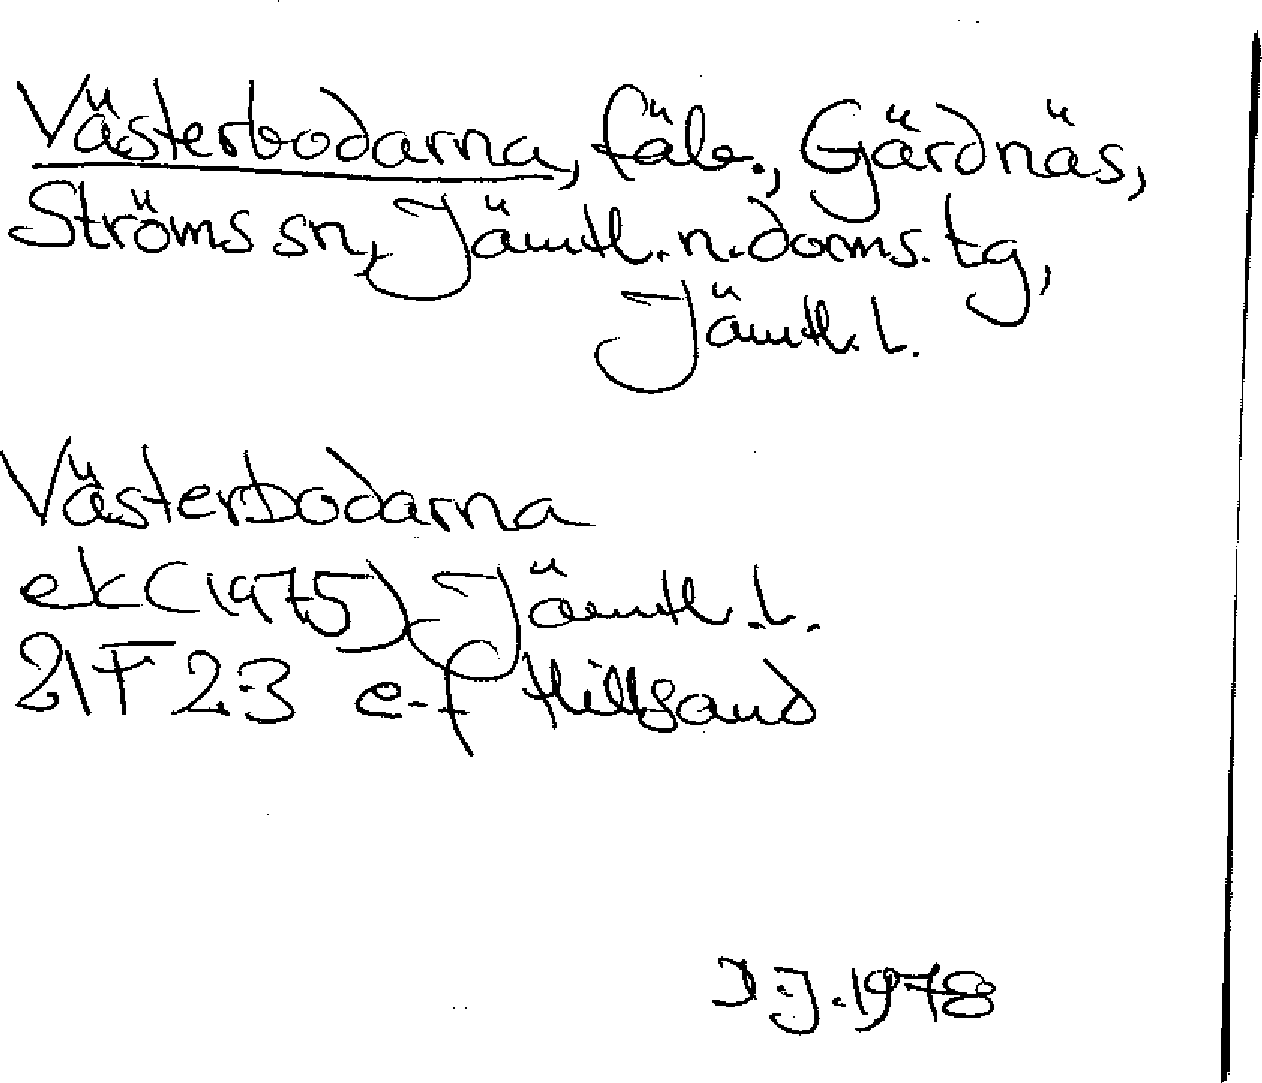 Västerbodarna, fäb., Gärdnäs,
Ströms sn, Jämtl. n. doms. tg,
Jämtl. l.
Västerbodarna
ek (1975) Jämtl. l.
21F 23 e-f Hillsand
J.1978